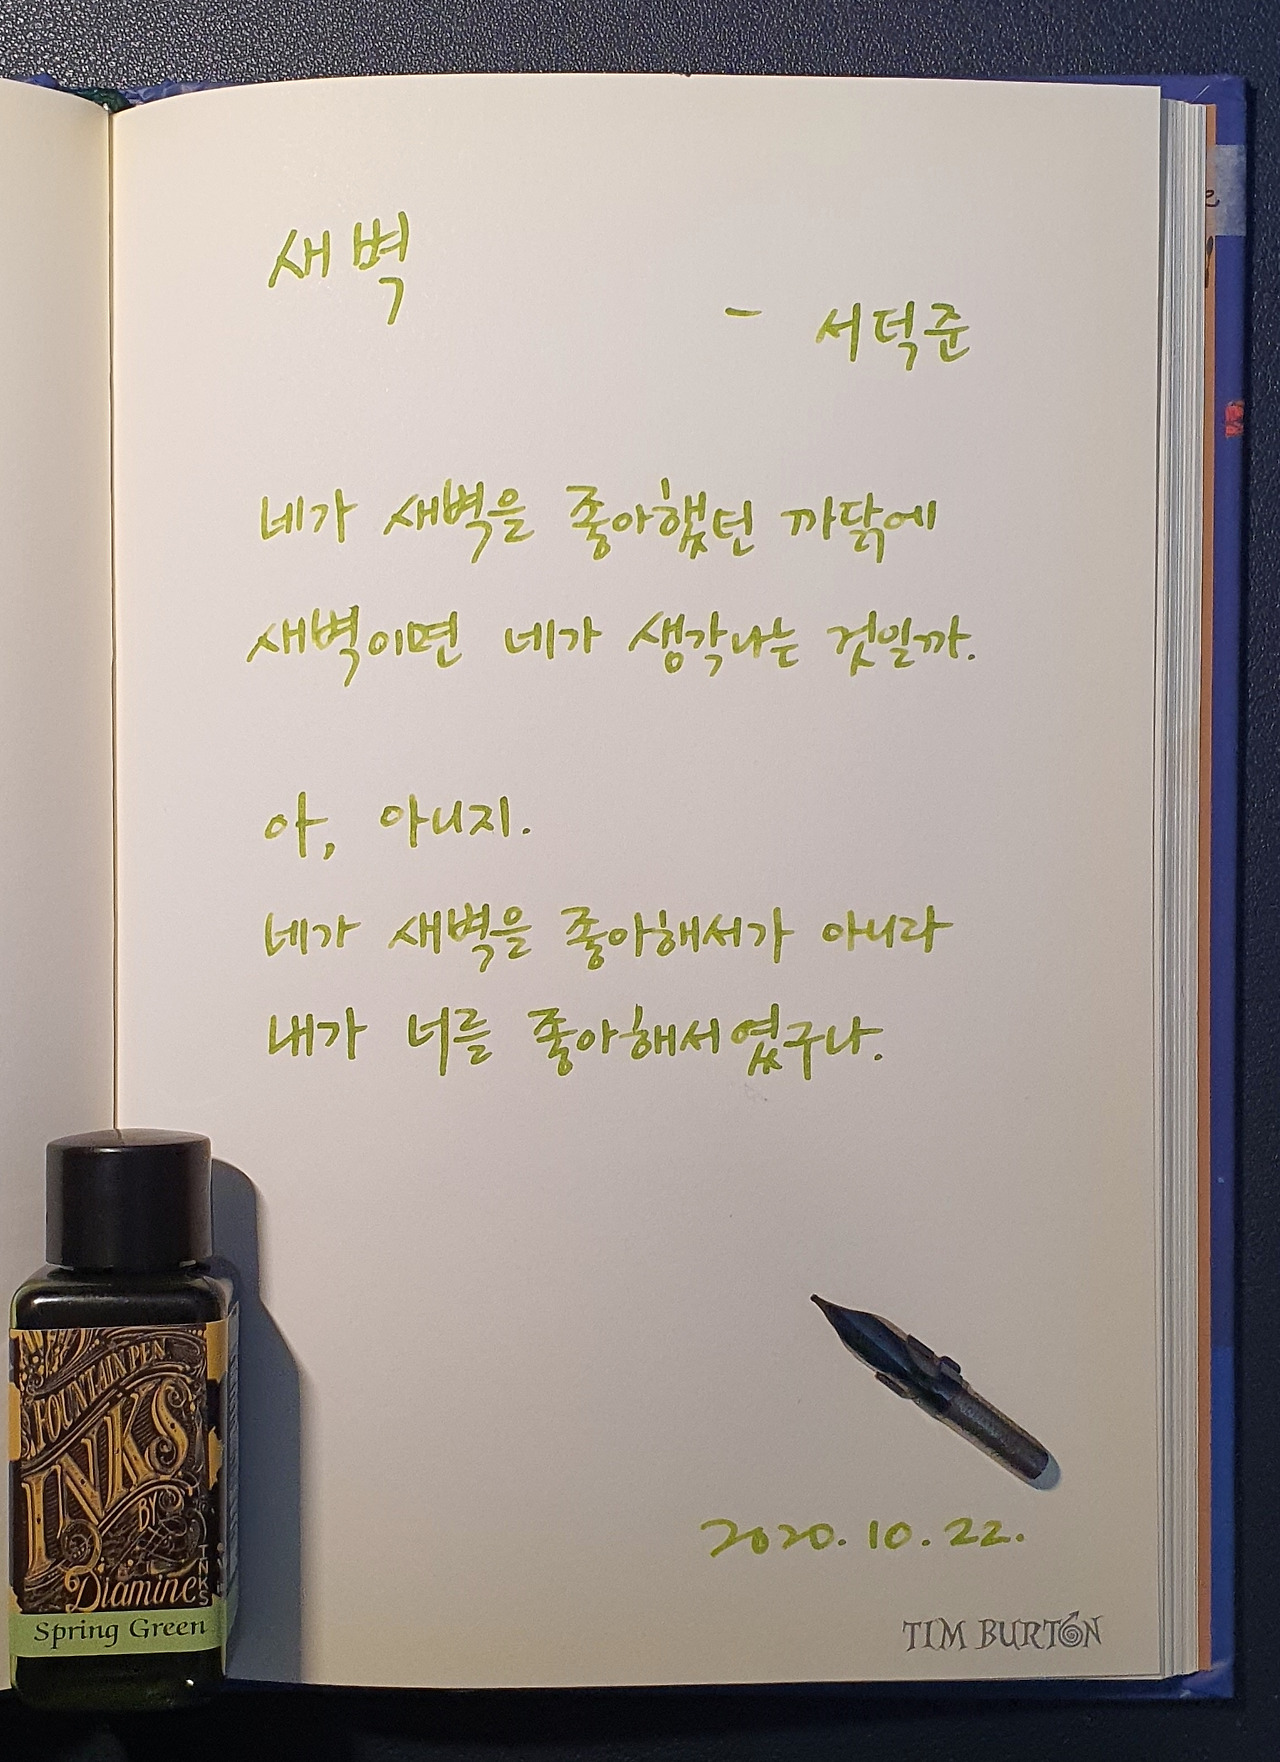 새벽
- 서덕준
네가 새벽을 좋아했던 까닭에
새벽이면 네가 생각나는 것일까.
아, 아니지.
네가 새벽을 좋아해서가 아니라
내가 너를 좋아해서였구나.
FOUNTAIN PEN
INKS
BY
Diamine
INKS
Spring Green
2020. 10. 22.
TIM BURTON